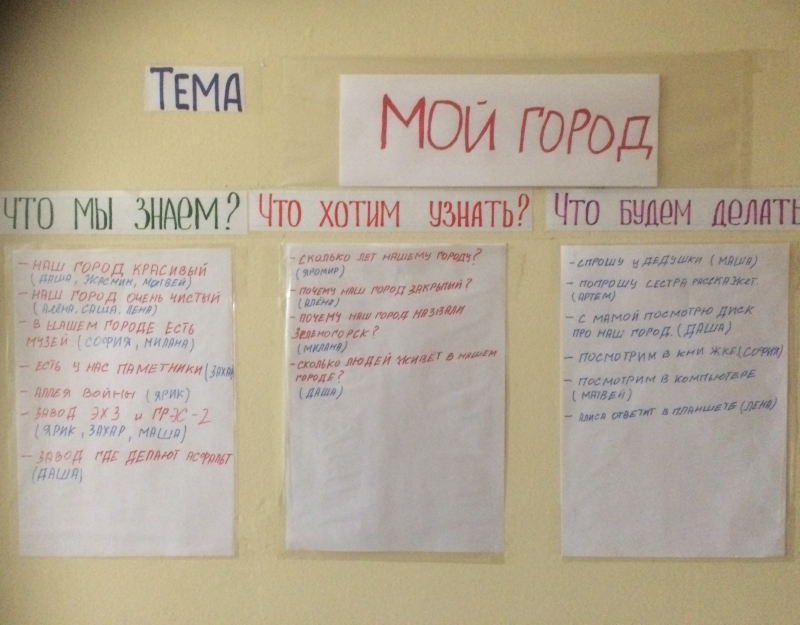 ТЕМА
МОЙ ГОРОД
ЧТО МЫ ЗНАЕМ?
ЧТО ХОТИМ УЗНАТЬ?
ЧТО БУДЕМ ДЕЛАТЬ
- НАШ ГОРОД КРАСИВЫЙ
(ДАША, ЖАСМИН, МАТВЕЙ)
- НАШ ГОРОД ОЧЕНЬ ЧИСТЫЙ
(АЛЁНА, САША, ЛЕНА)
- В НАШЕМ ГОРОДЕ ЕСТЬ
МУЗЕЙ (СОФИЯ, МИЛАНА)
- ЕСТЬ У НАС ПАМЕТНИКИ (ЗАХАР
- АЛЛЕЯ ВОЙНЫ (ЯРИК)
- ЗАВОД ЭХЗ и ГРЭС-2
(ЯРИК, ЗАХАР, МАША)
- ЗАВОД ГДЕ ДЕЛАЮТ АСФАЛЬТ
(ДАША)
- СКОЛЬКО ЛЕТ НАШЕМУ ГОРОДУ?
(ЯРОМИР)
- ПОЧЕМУ НАШ ГОРОД ЗАКРЫТИЙ?
(АЛЁНА)
- ПОЧЕМУ НАШ ГОРОД НАЗВАЛИ
ЗЕЛЕНОГОРСК?
(МИЛАНА)
- СКОЛЬКО ЛЮДЕЙ ЖИВЕТ В НАШЕМ
ГОРОДЕ?
(ДАША)
- СПРОШУ У ДЕДУШКИ (МАША)
- ПОПРОШУ СЕСТРА РАССКАЖЕТ
(АРТЕМ)
- С МАМОЙ ПОСМОТРЮ ДИСК
ПРО НАШ ГОРОД. (ДАША)
- ПОСМОТРИМ В КНИЖКЕ (СОФИЯ)
- ПОСМОТРИМ В КОМПЬЮТЕРЕ
(МАТВЕЙ)
- АЛИСА ОТВЕТИТ В ПЛАНШЕТЕ (ЛЕНА)